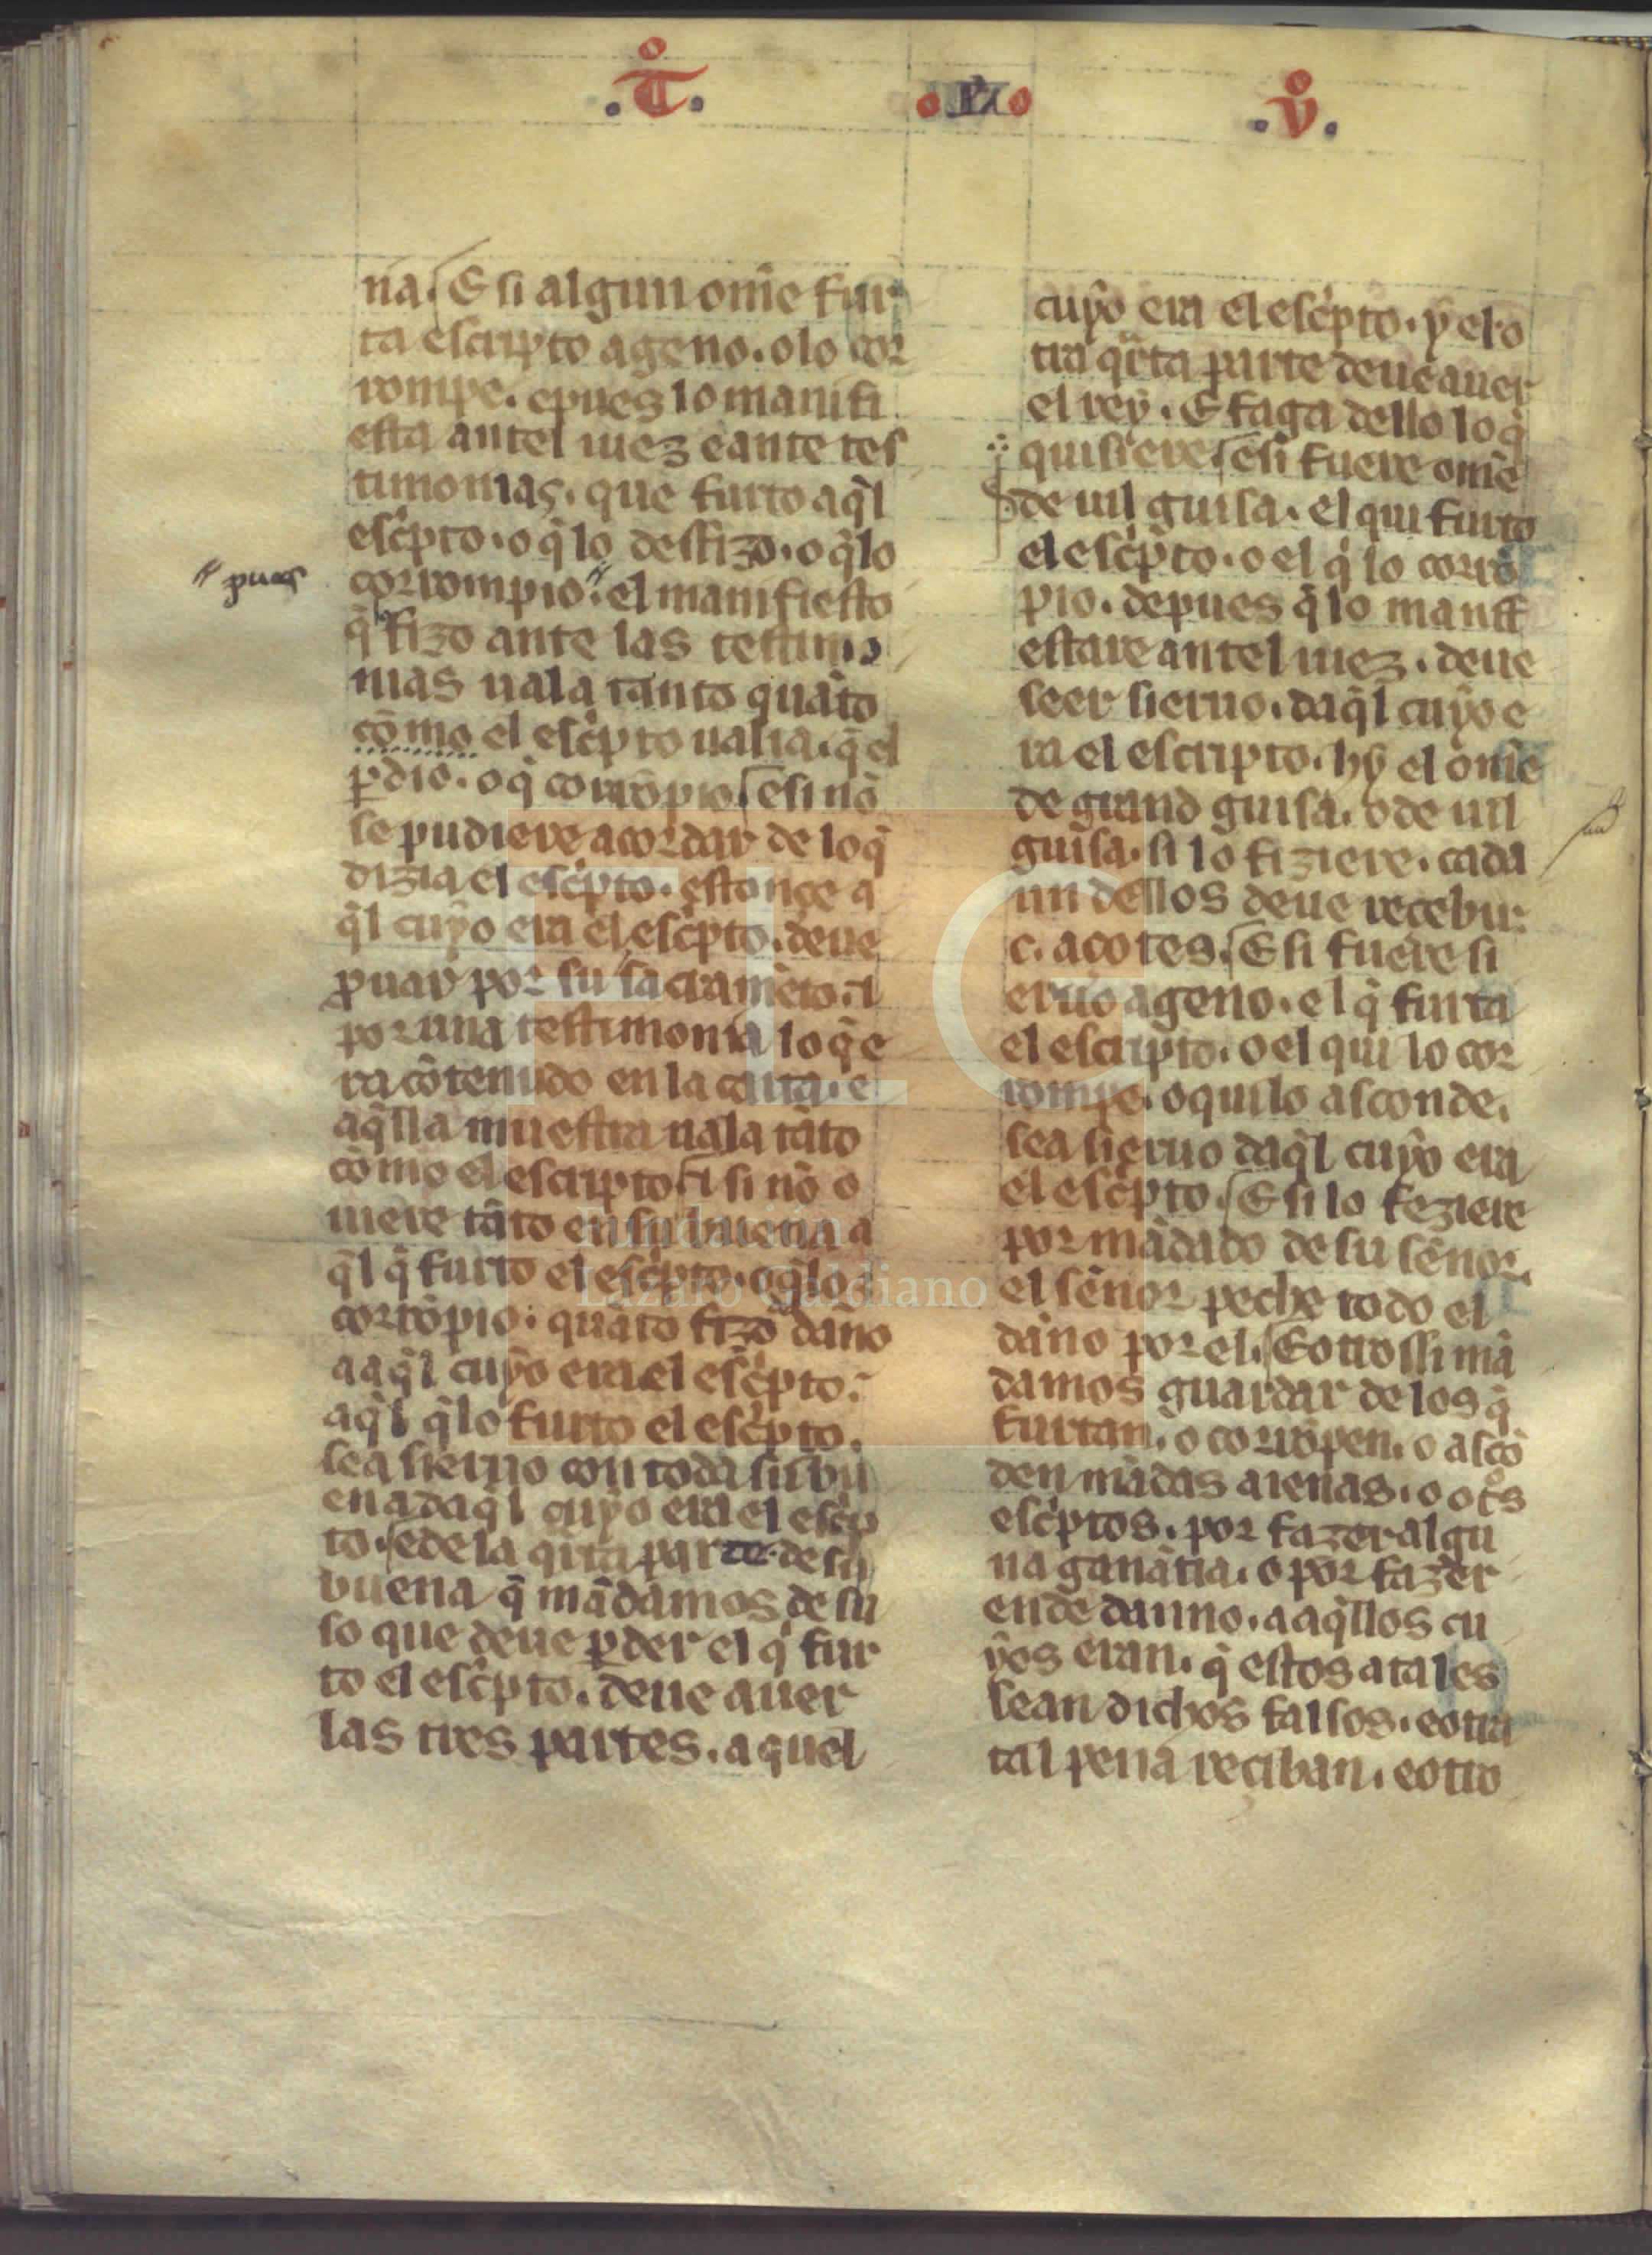 .T. .IX. .V.
na. E si algun om̃e fur
ta escripto ageno. o lo cor
rompe. epues lo manifi
esta antel iuez e ante tes
timonias. que furto aq̃l
esc̃pto. o q̃ lo desfizo. o q̃ lo
pues
corrompio. el manifiesto
q̃ fizo ante las testimo
nias uala tanto quãto
cõmo el esc̃pto ualia. q̃ el
ꝑdio. o q̃ corrõpio e si nõ
se pudiere acordar de lo q̃
dizia el esc̃pto. estonçe a
q̃l cuyo era el esc̃pto. deue
ꝓuar por su sacramẽto. ⁊
por una testimonia lo q̃ e
ra cõtenudo en la carta. e
aq̃lla muestra uala tãto
cõmo el escripto ⁊ si nõ o
uiere tãto en su buena a
q̃l q̃ furto el esc̃pto. o q̃ lo
corrõpio. quãto fizo daño
a aq̃l cuyo era el esc̃pto.
aq̃l q̃ lo furto el esc̃pto.
sea sieruo con toda su bu
ena daq̃l cuyo era el esc̃p
to. e de la q̃rta parte de su
buena q̃ mãdamos de su
so que deue ꝑder el q̃ fur
to el esc̃pto. deue auer
las tres partes. aquel
cuyo era el esc̃pto. y el o
tra q̃rta parte deue auer
el rey. E faga dello lo q̃
quisiere e si fuere om̃e
de uil guisa. el qui furto
el esc̃pto. o el q̃ lo corrõ
pio. depues q̃ lo manif
estare antel iuez. deue
seer sieruo. daq̃l cuyo e
ra el escripto. hy el om̃e
de grand guisa. o de uil
guisa. si lo fiziere. cada
un dellos deue recebir
c. açotes. E si fuere si
eruo ageno. el q̃ furta
el escripto. o el qui lo cor
rompe. o qui lo asconde.
sea sieruo daq̃l cuyo era
el esc̃pto. E si lo feziere
por mãdado de su señor.
el señor peche todo el
daño por el. E otrossi mã
damos guardar de los q̃
furtan. o corrõpen. o ascõ
den mãdas aienas. o ot̃os
esc̃ptos. por fazer algu
na ganãtia. o por fazer
ende danno. a aq̃llos cu
yos eran. q̃ estos atales
sean dichos falsos. e otra
tal pena reçiban. e otro
Fundación
Lázaro Galdiano
FLG